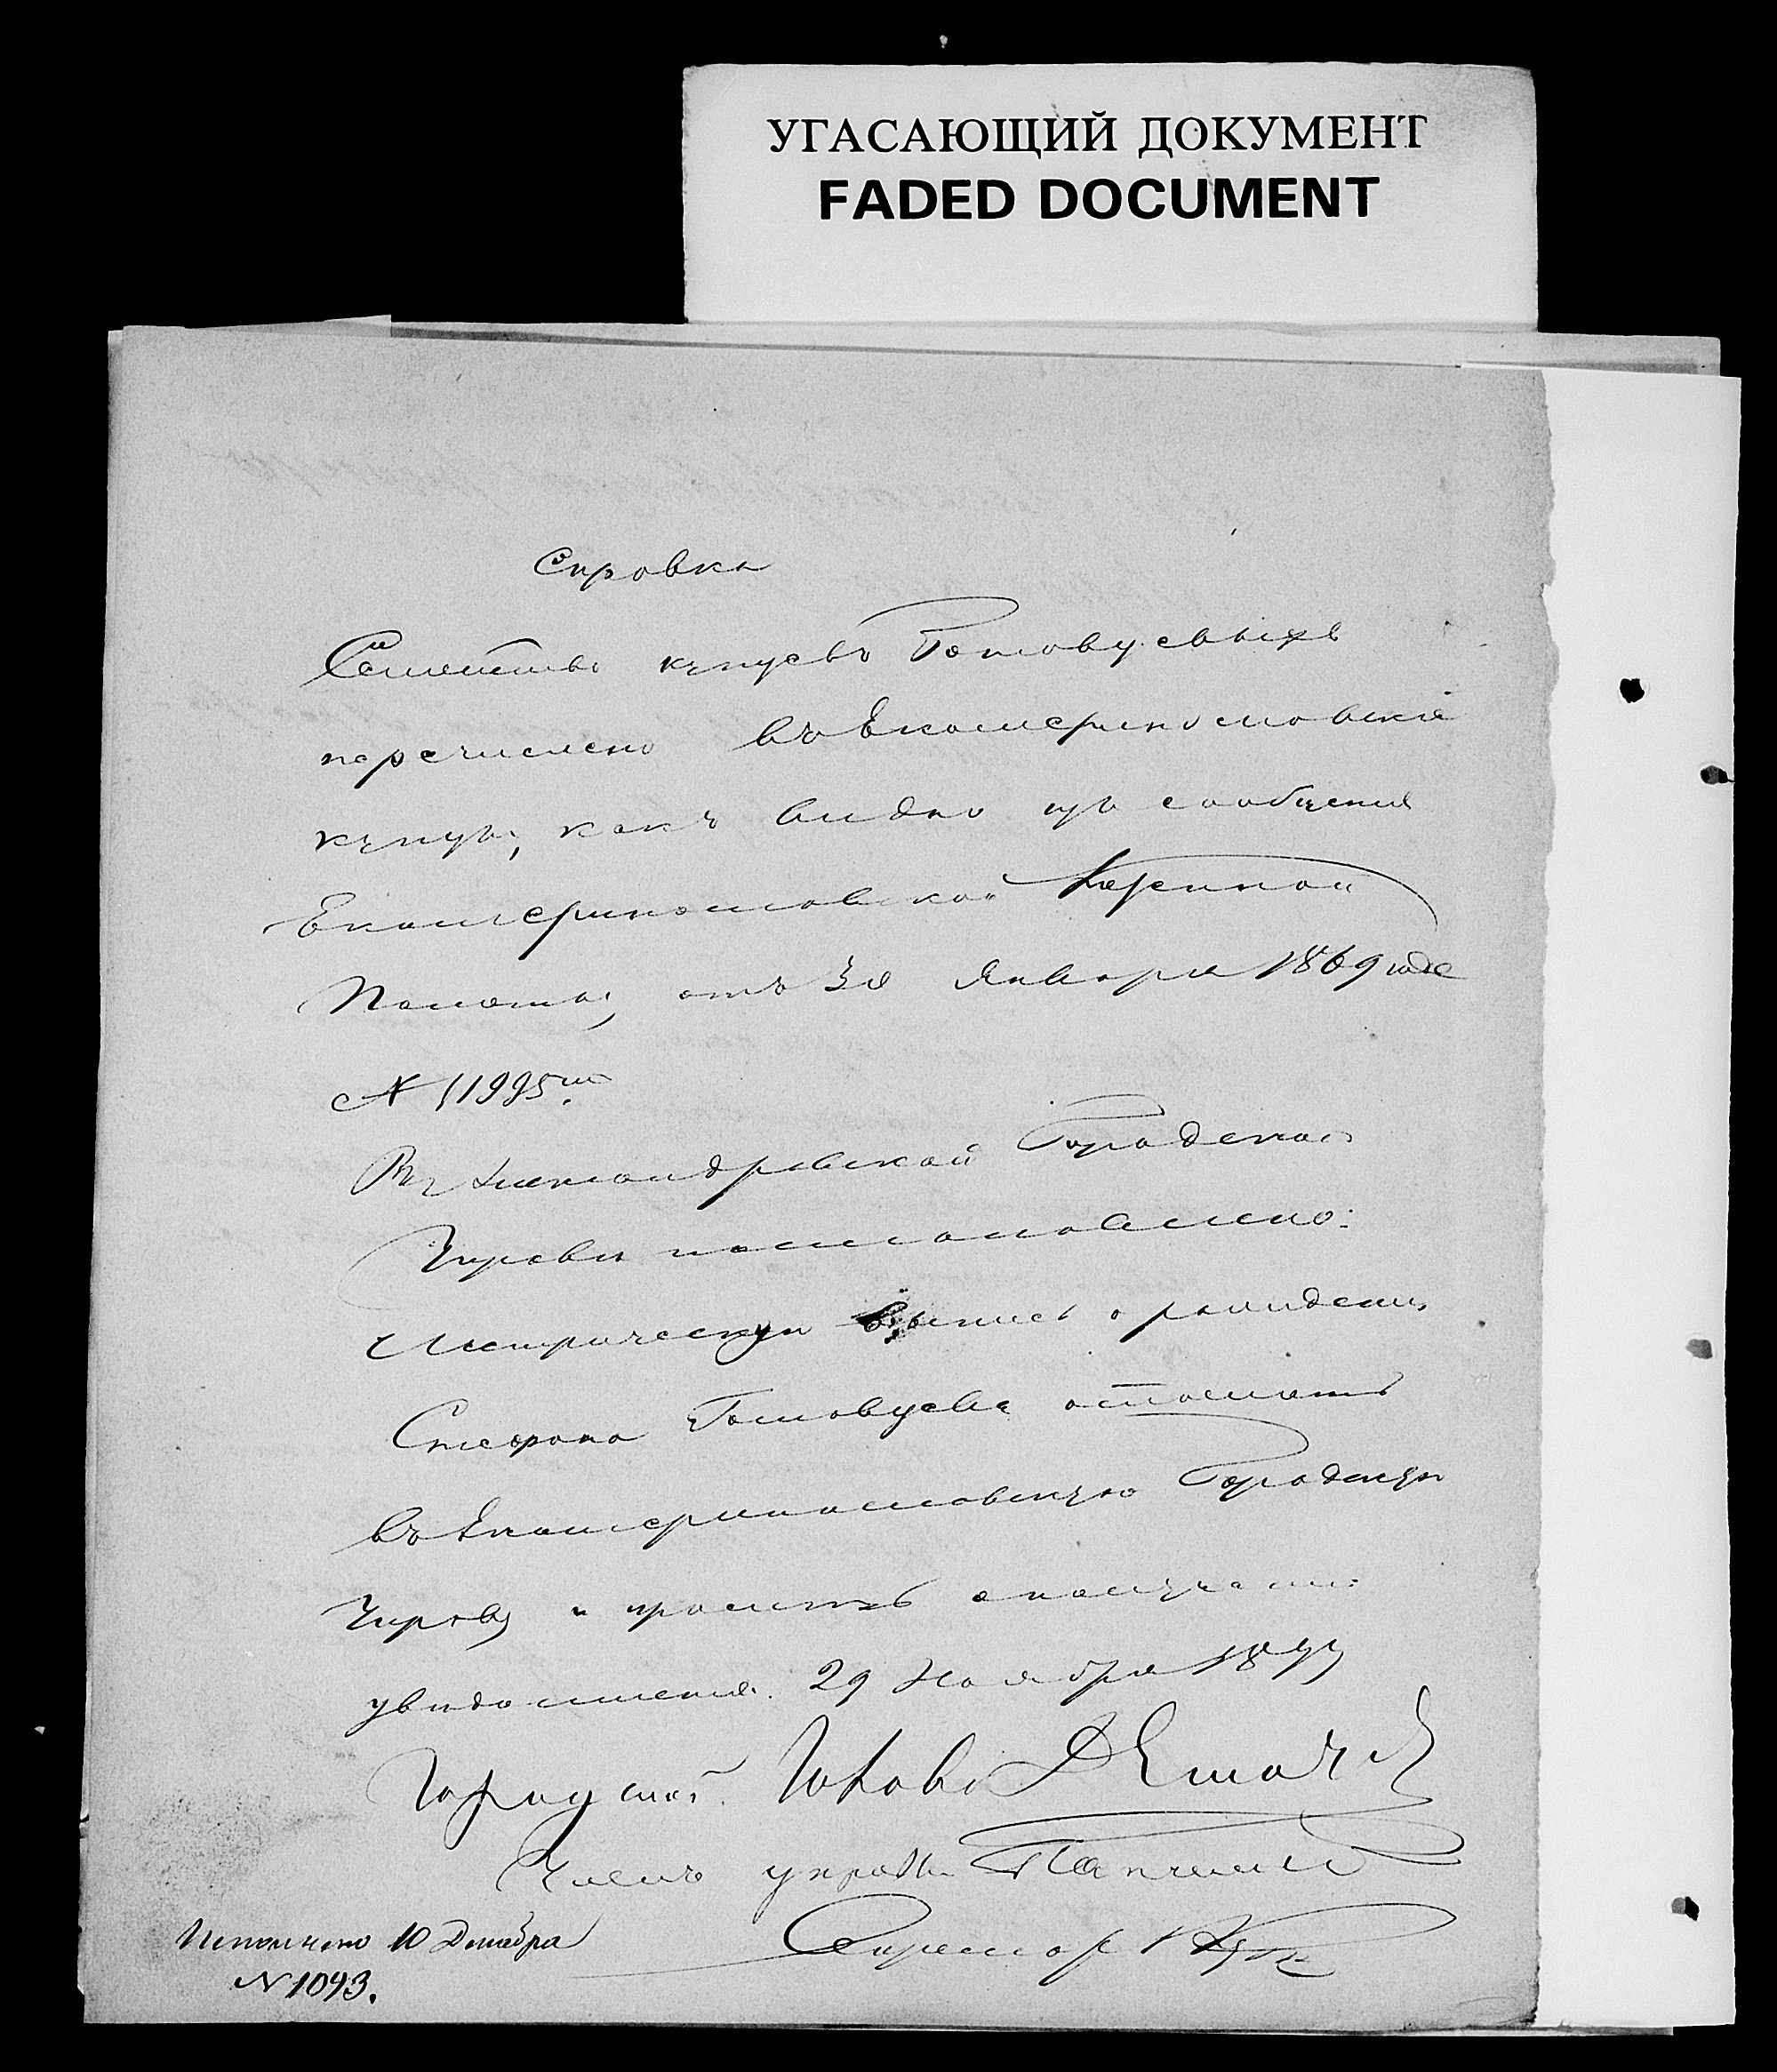 УГАСАЮЩИЙ ДОКУМЕНТ
FADED DOCUMENT
Справка
Семейство купцовъ
перечислено въ Екатеринославскіе
купцы, какъ видно изъ сообщенія
Екатеринославской Казенной
Палаты, отъ 30 Января 1869 года
№ 11995
Въ Александровской Городской
Управѣ постановлено:
Метрическую выпись о рожденіи
отослать
въ Екатеринославскую Городскую
Управу и просить о полученіи
увѣдомленія. 29 Ноября 1877
Городской Голова
Членъ управы
Секретарь
Исполнено 10 Декабря
№ 1093.